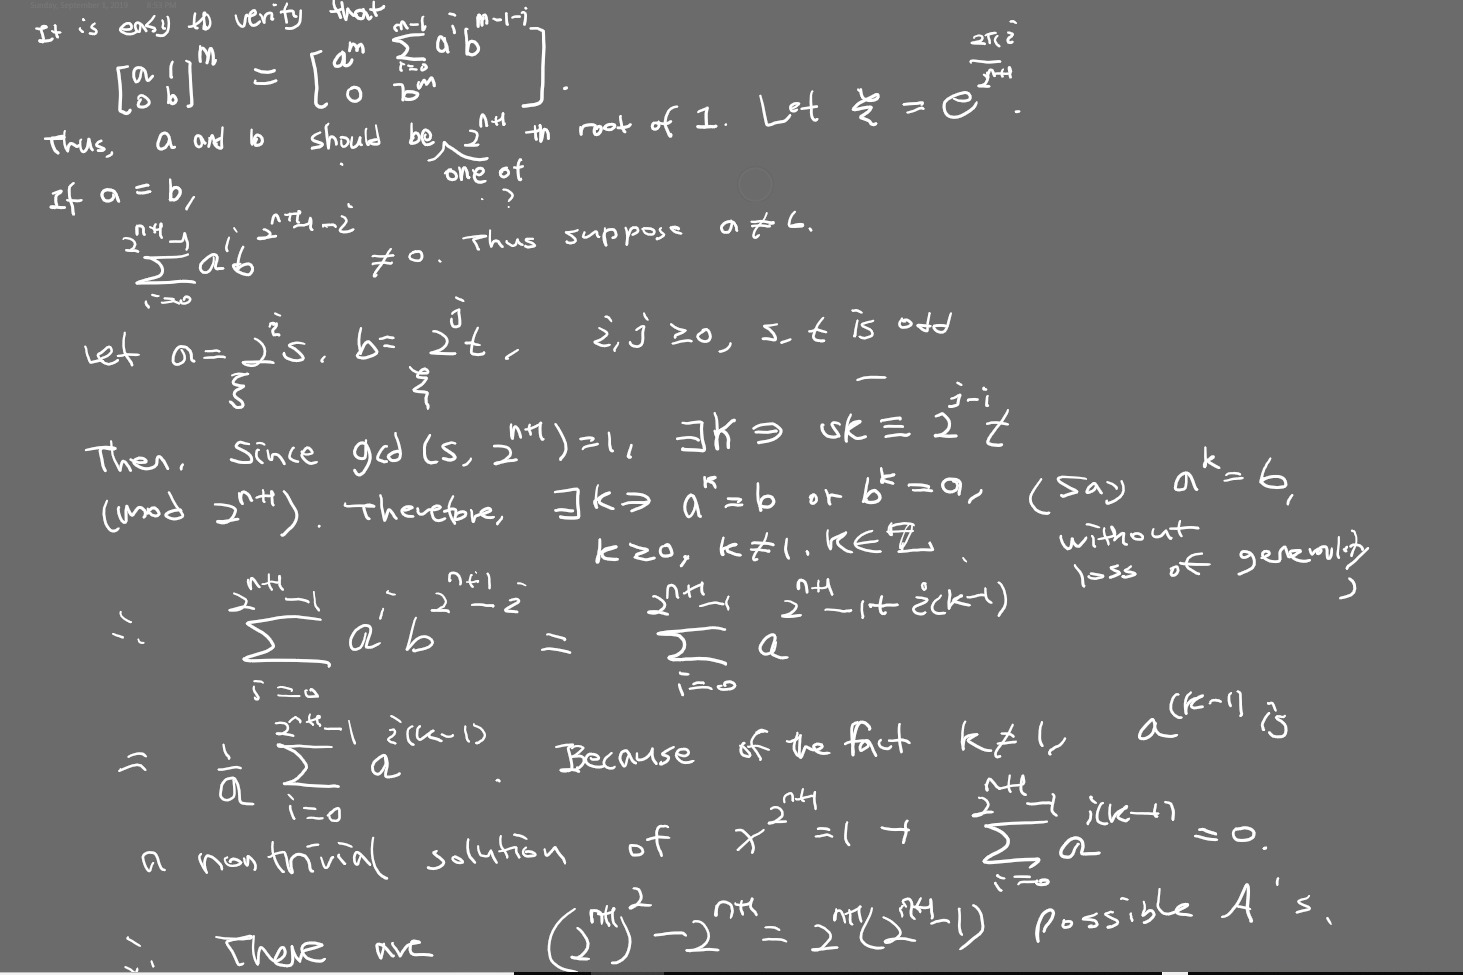 It is easy to verify that
[a 1; 0 b]^m = [a^m Σ_{i=0}^{m-1} a^i b^{m-1-i}; 0 b^m].
Thus, a and b should be one of 2^{n+1} th root of 1. Let ξ = e^{2πi/2^{n+1}}.
If a = b,
Σ_{i=0}^{2^{n+1}-1} a^i b^{2^{n+1}-1-i} ≠ 0. Thus suppose a ≠ b.
Let a = ξ^{2^i s}, b = ξ^{2^j t}, i, j ≥ 0, s, t is odd
Then, since gcd(s, 2^{n+1}) = 1, ∃k ∋ sk ≡ 2^{j-i} t
(mod 2^{n+1}). Therefore, ∃k ∋ a^k = b or b^k = a, (say a^k = b,
k ≥ 0, k ≠ 1. k ∈ ℤ. without loss of generality)
∴ Σ_{i=0}^{2^{n+1}-1} a^i b^{2^{n+1}-i} = Σ_{i=0}^{2^{n+1}-1} a^{2^{n+1}-1+i(k-1)}
= 1/a Σ_{i=0}^{2^{n+1}-1} a^{i(k-1)}. Because of the fact k ≠ 1, a^{(k-1)} is
a nontrivial solution of x^{2^{n+1}} = 1 → Σ_{i=0}^{2^{n+1}-1} a^{i(k-1)} = 0.
∴ There are (2^{n+1})^2 - 2^{n+1} = 2^{n+1}(2^{n+1}-1) possible A's.